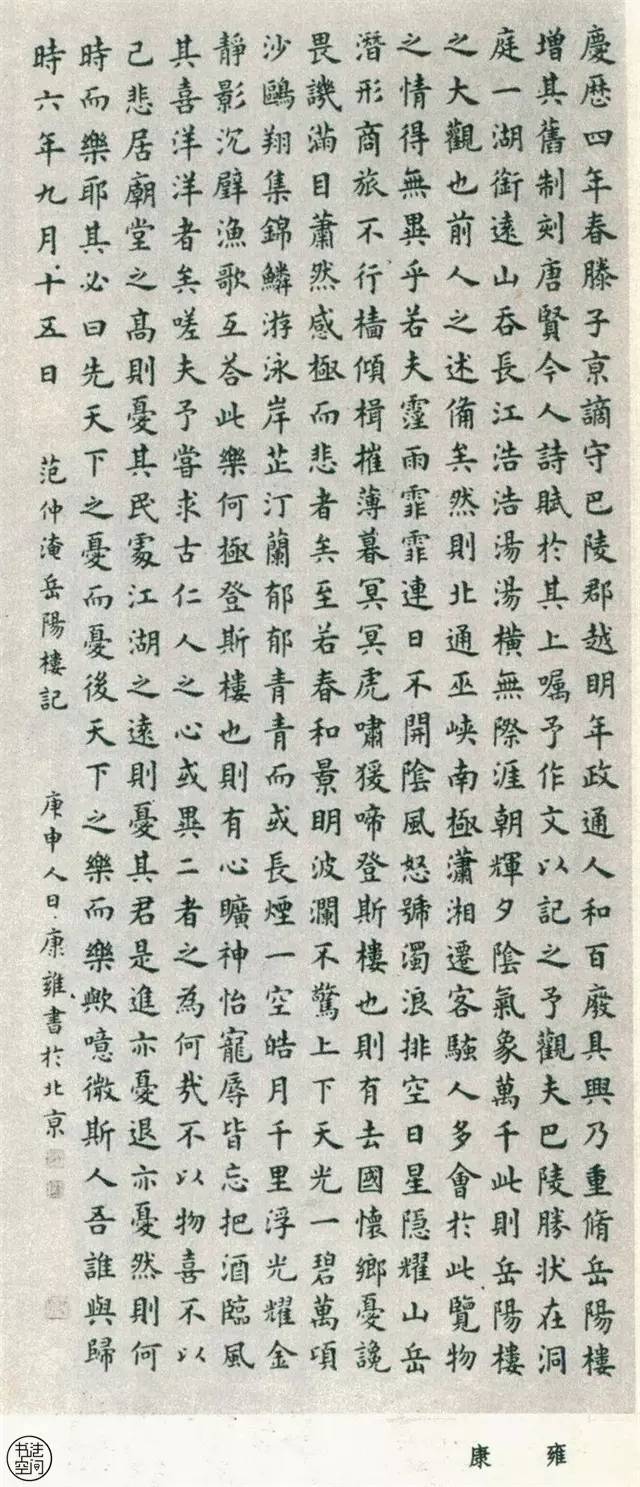 慶歷四年春滕子京謫守巴陵郡越明年政通人和百廢具興乃重脩岳陽樓
增其舊制刻唐賢今人詩賦於其上嘱予作文以記之予觀夫巴陵勝状在洞
庭一湖銜遠山吞長江浩浩湯湯橫無際涯朝輝夕陰氣象萬千此則岳陽樓
之大觀也前人之述備矣然則北通巫峡南極瀟湘遷客騷人多會於此覽物
之情得無異乎若夫霪雨霏霏連日不開陰風怒號濁浪排空日星隱耀山岳
潛形商旅不行檣傾楫摧薄暮冥冥虎嘯猨啼登斯樓也則有去國懷鄉憂讒
畏譏滿目蕭然感極而悲者矣至若春和景明波瀾不驚上下天光一碧萬頃
沙鷗翔集錦鱗游泳岸芷汀蘭郁郁青青而或長煙一空皓月千里浮光耀金
靜影沉璧漁歌互荅此樂何極登斯樓也則有心曠神怡寵辱皆忘把酒臨風
其喜洋洋者矣嗟夫予嘗求古仁人之心或異二者之為何哉不以物喜不以
己悲居廟堂之高則憂其民處江湖之遠則憂其君是進亦憂退亦憂然則何
時而樂耶其必曰先天下之憂而憂後天下之樂而樂歟噫微斯人吾誰與歸
時六年九月十五日 范仲淹岳陽樓記 庚申人日康雍書於北京
康雍
书法空间